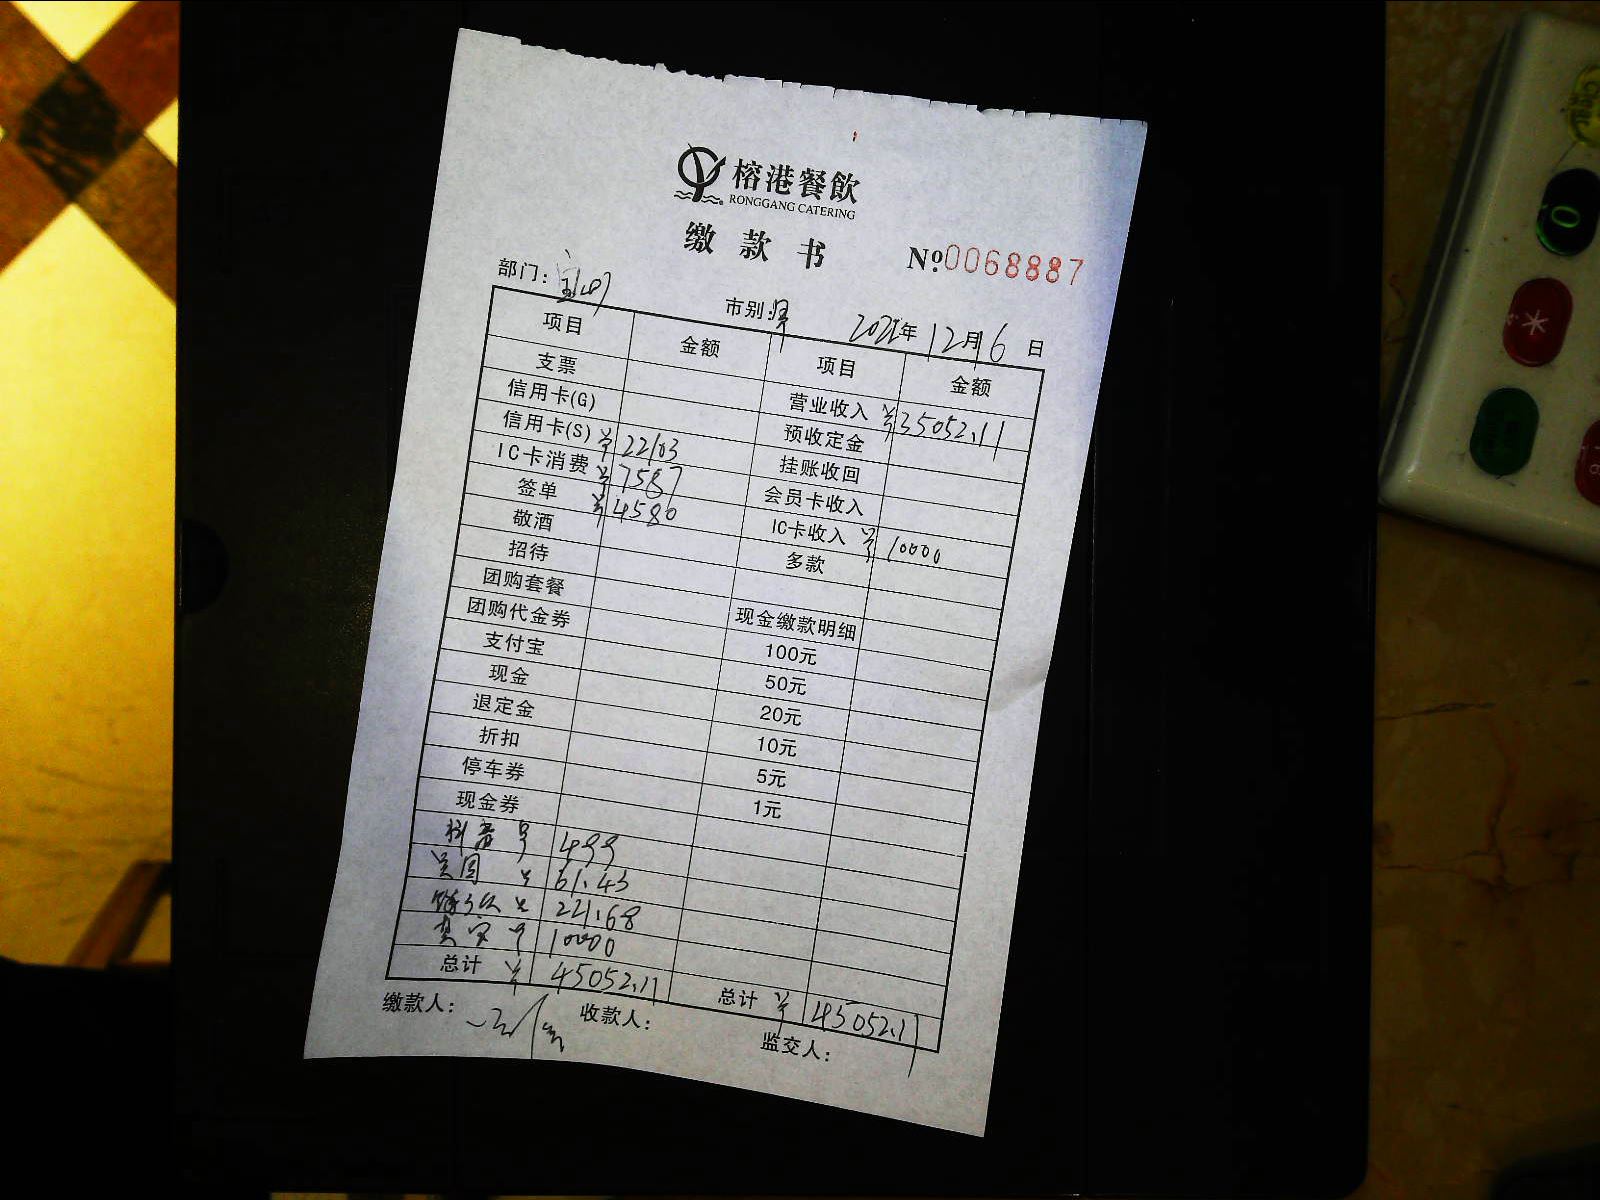 榕港餐飲
RONGGANG CATERING
缴款书 Nº0068887
部门: 市别: 2021年12月6日
项目 金额 项目 金额
支票 营业收入 ¥35052.11
信用卡(G) 预收定金
信用卡(S) ¥22103 挂账收回
IC卡消费 ¥7587 会员卡收入
签单 ¥4580 IC卡收入 ¥10000
敬酒 多款
招待
团购套餐 现金缴款明细
团购代金券 100元
支付宝 50元
现金 20元
退定金 10元
折扣 5元
停车券 1元
现金券
抖音 ¥499
美团 ¥61.43
¥221.68
¥10000
总计 ¥45052.11 总计 ¥45052.11
缴款人: 收款人: 监交人: